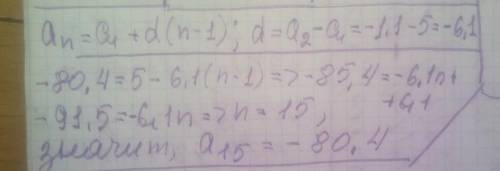 an = a1 + d(n-1); d = a2 - a1 = -1,1 - 5 = -6,1
-80,4 = 5 - 6,1(n-1) => -85,4 = -6,1n +
+6,1
-91,5 = -6,1n => n = 15,
значит, a15 = -80.4